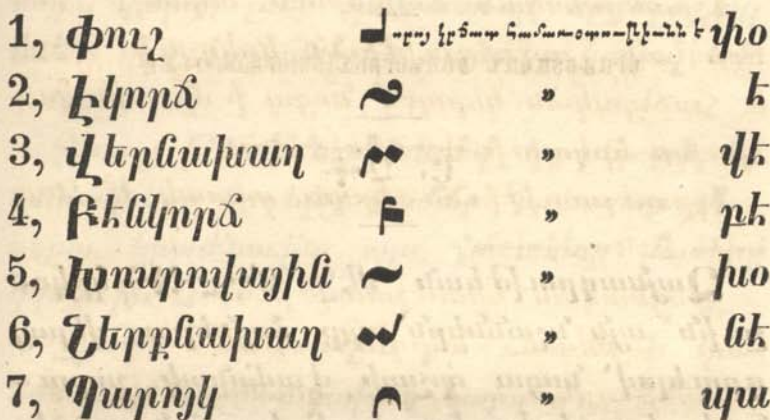 1, Փուշ որոյ կրճատ համառօտութիւնն է փօ
2, Էկորճ » է
3, Վերնախաղ » վէ
4, Բենկորճ » բէ
5, Խոսրովային » խօ
6, Ներքնախաղ » նէ
7, Պարոյկ » պա